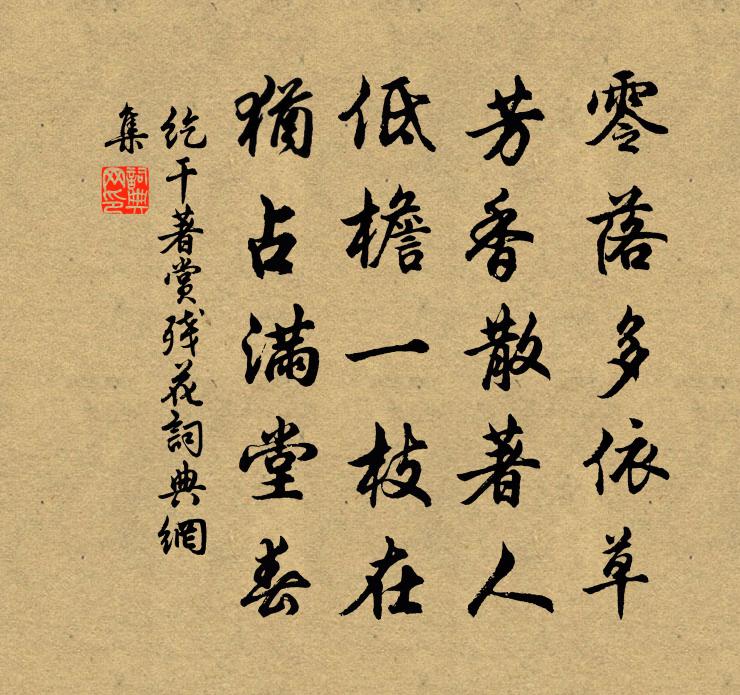 零落多依草
芳香散著人
低檐一枝在
猶占滿堂春
紇干著賞殘花詞典網
集
詞典
网印